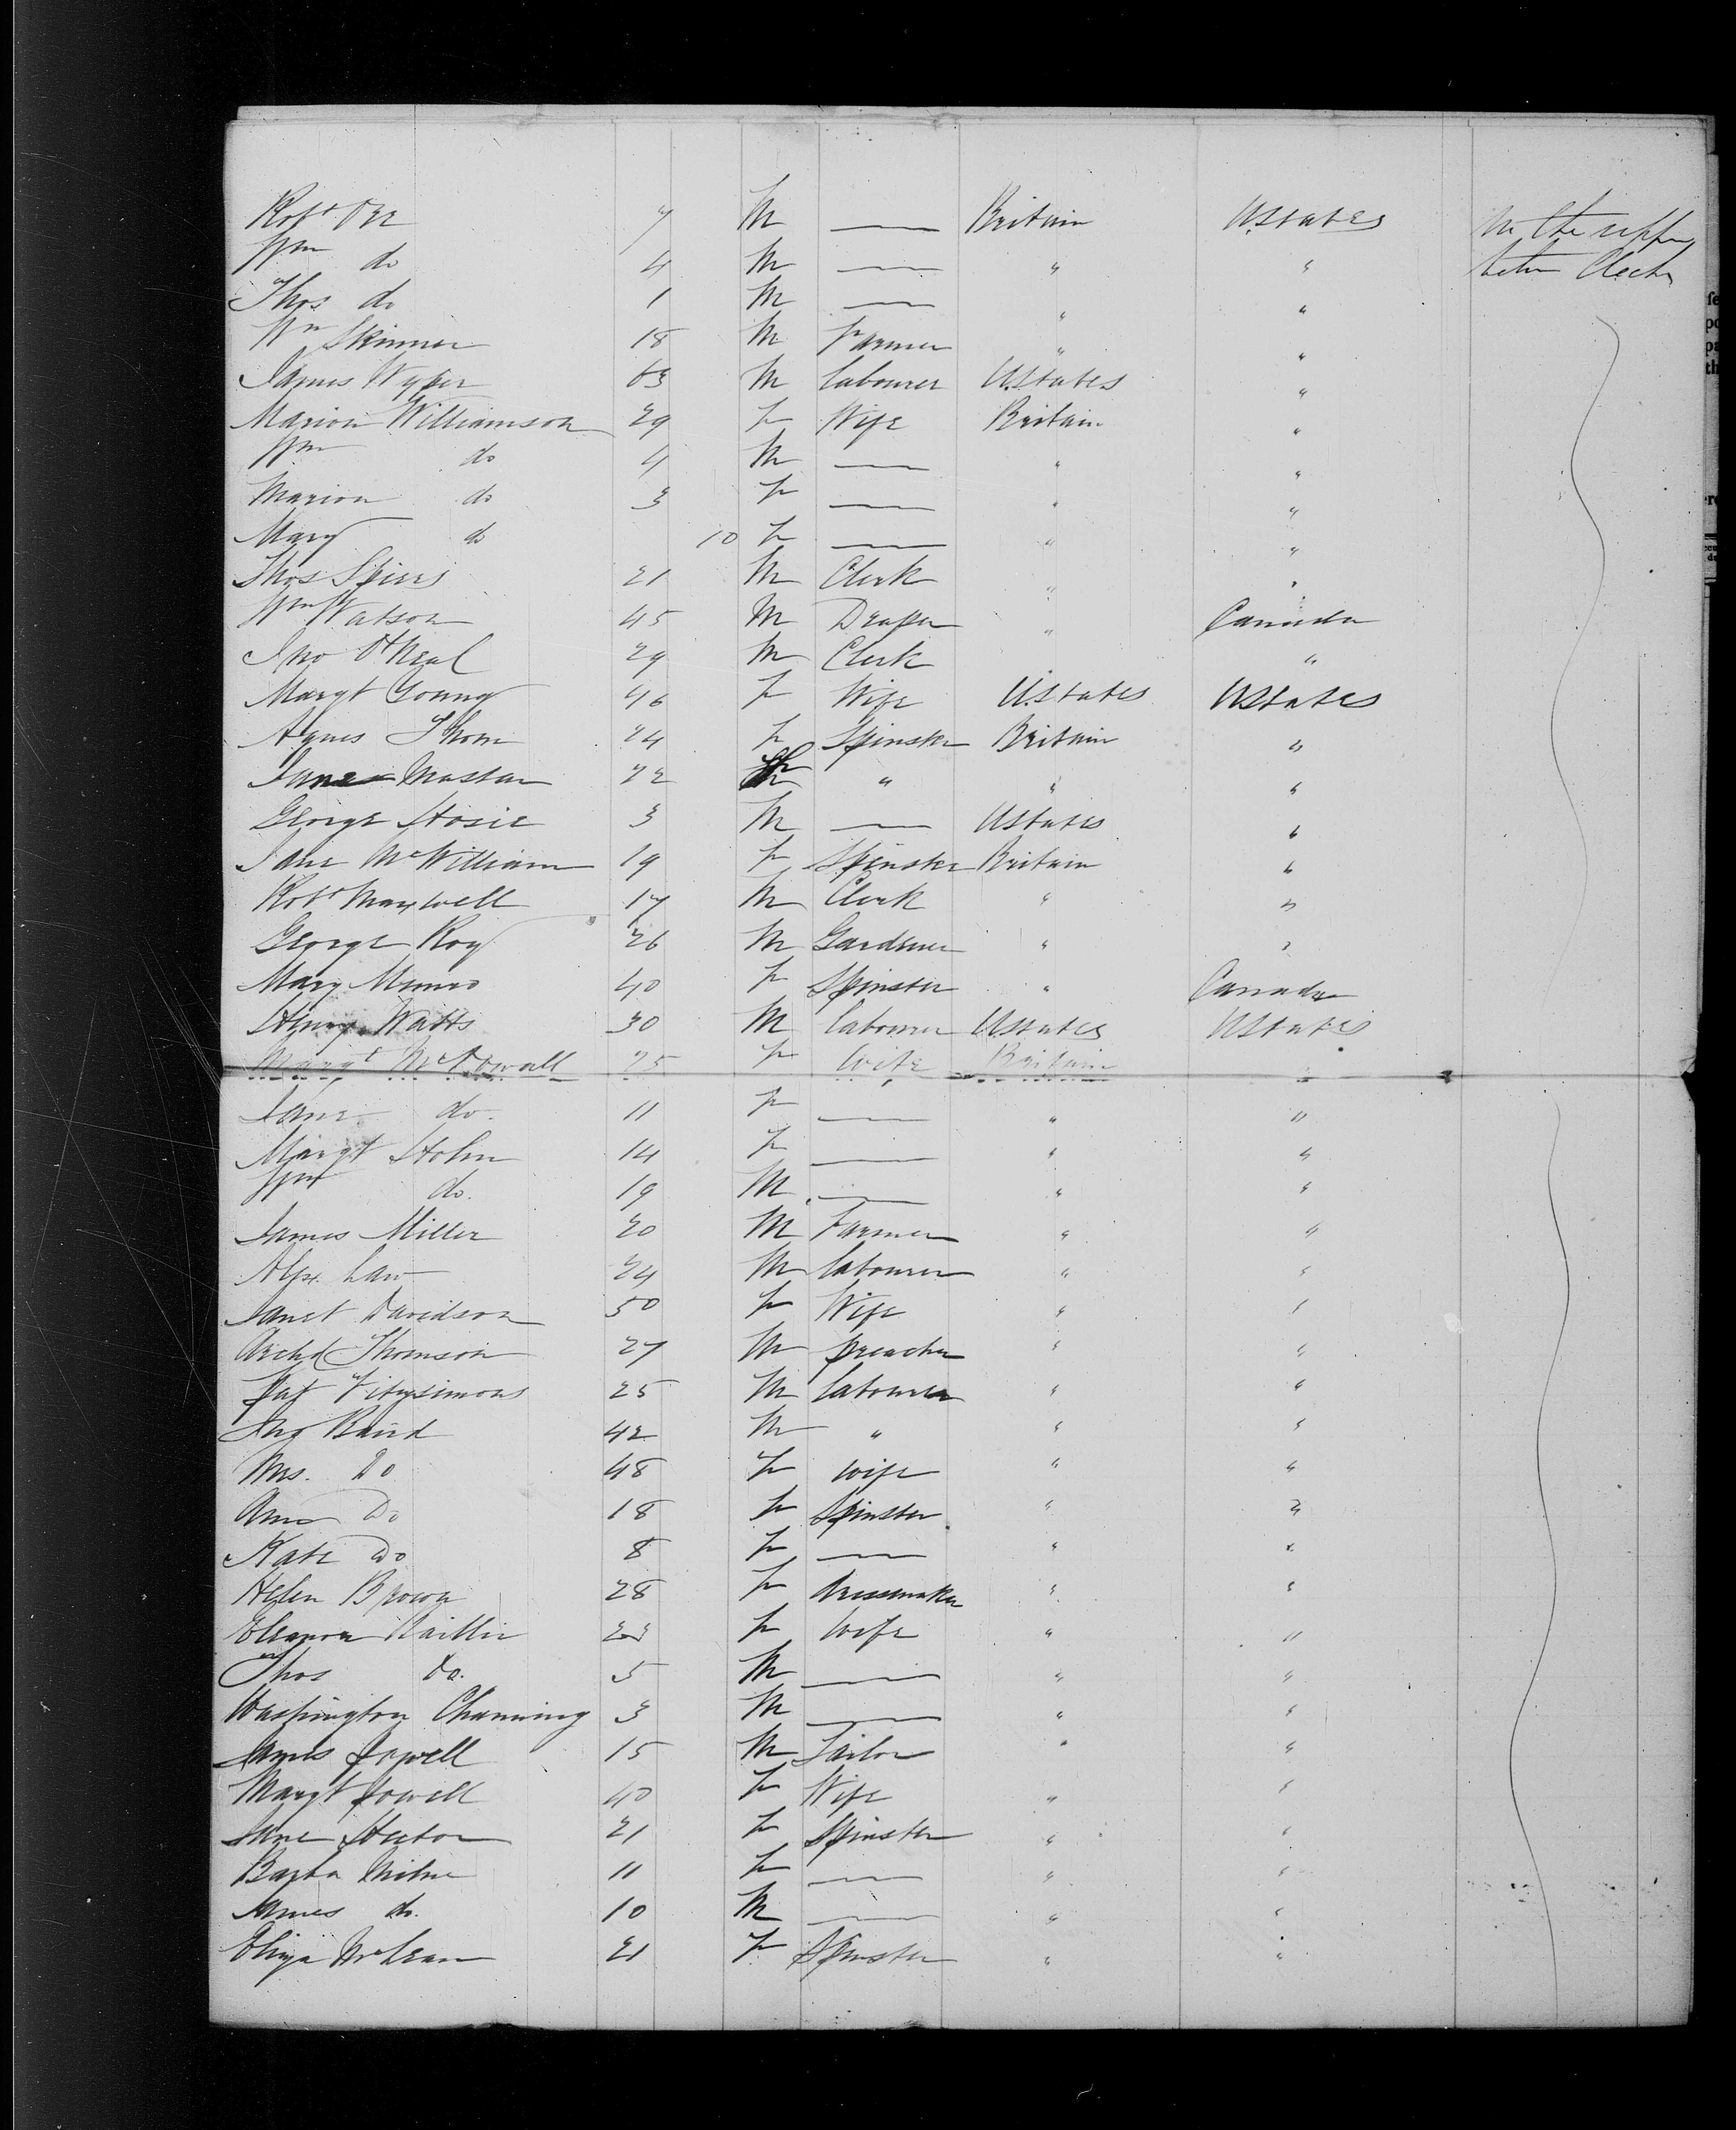 Robt Orr 7 M — Britain U.States In the upper
Wm do 4 M — " " between Decks
Thos do 1 M — " "
Wm Skinner 18 M Farmer " "
James Wyper 63 M labourer U.States "
Marion Williamson 29 F Wife Britain "
Wm do 4 M — " "
Marion do 3 F — " "
Mary do 10 F — " "
Thos Spiers 21 M Clerk " "
Wm Watson 45 M Draper " Canada
Jno O'Neal 29 M Clerk "
Margt Young 46 F Wife U.States UStates
Agnes Thom 24 F Spinster Britain "
Jane Mastar 22 " " "
George Hosie 3 M — UStates "
Jane McWilliam 19 F Spinster Britain "
Robt Maxwell 17 M Clerk " "
George Roy 26 M Gardener " "
Mary Munro 40 F Spinster " Canada
Henry Watts 30 M labourer UStates UStates
Margt McDowall 25 F Wife Britain "
Jane do. 11 F — " "
Margt Holm 14 F — " "
Wm do. 19 M — " "
James Miller 20 M Farmer " "
Alex Law 24 M labourer " "
Janet Davidson 50 F Wife " "
Archd Thomson 27 M preacher " "
Pat Fitzsimons 25 M labourer " "
Jno Baird 42 M " " "
Mrs. Do 48 F wife " "
Ann Do 18 F Spinster " "
Kate Do 8 F — " "
Helen Brown 28 F dressmaker " "
Eleanor Baillie 23 F Wife " "
Thos Do. 5 M — " "
Washington Channing 3 M — " "
James Powell 15 M Tailor " "
Margt Powell 40 F Wife " "
Jane Hector 21 F Spinster " "
Barba Milne 11 F — " "
James do. 10 M — " "
Eliza McLean 21 F Spinster " "